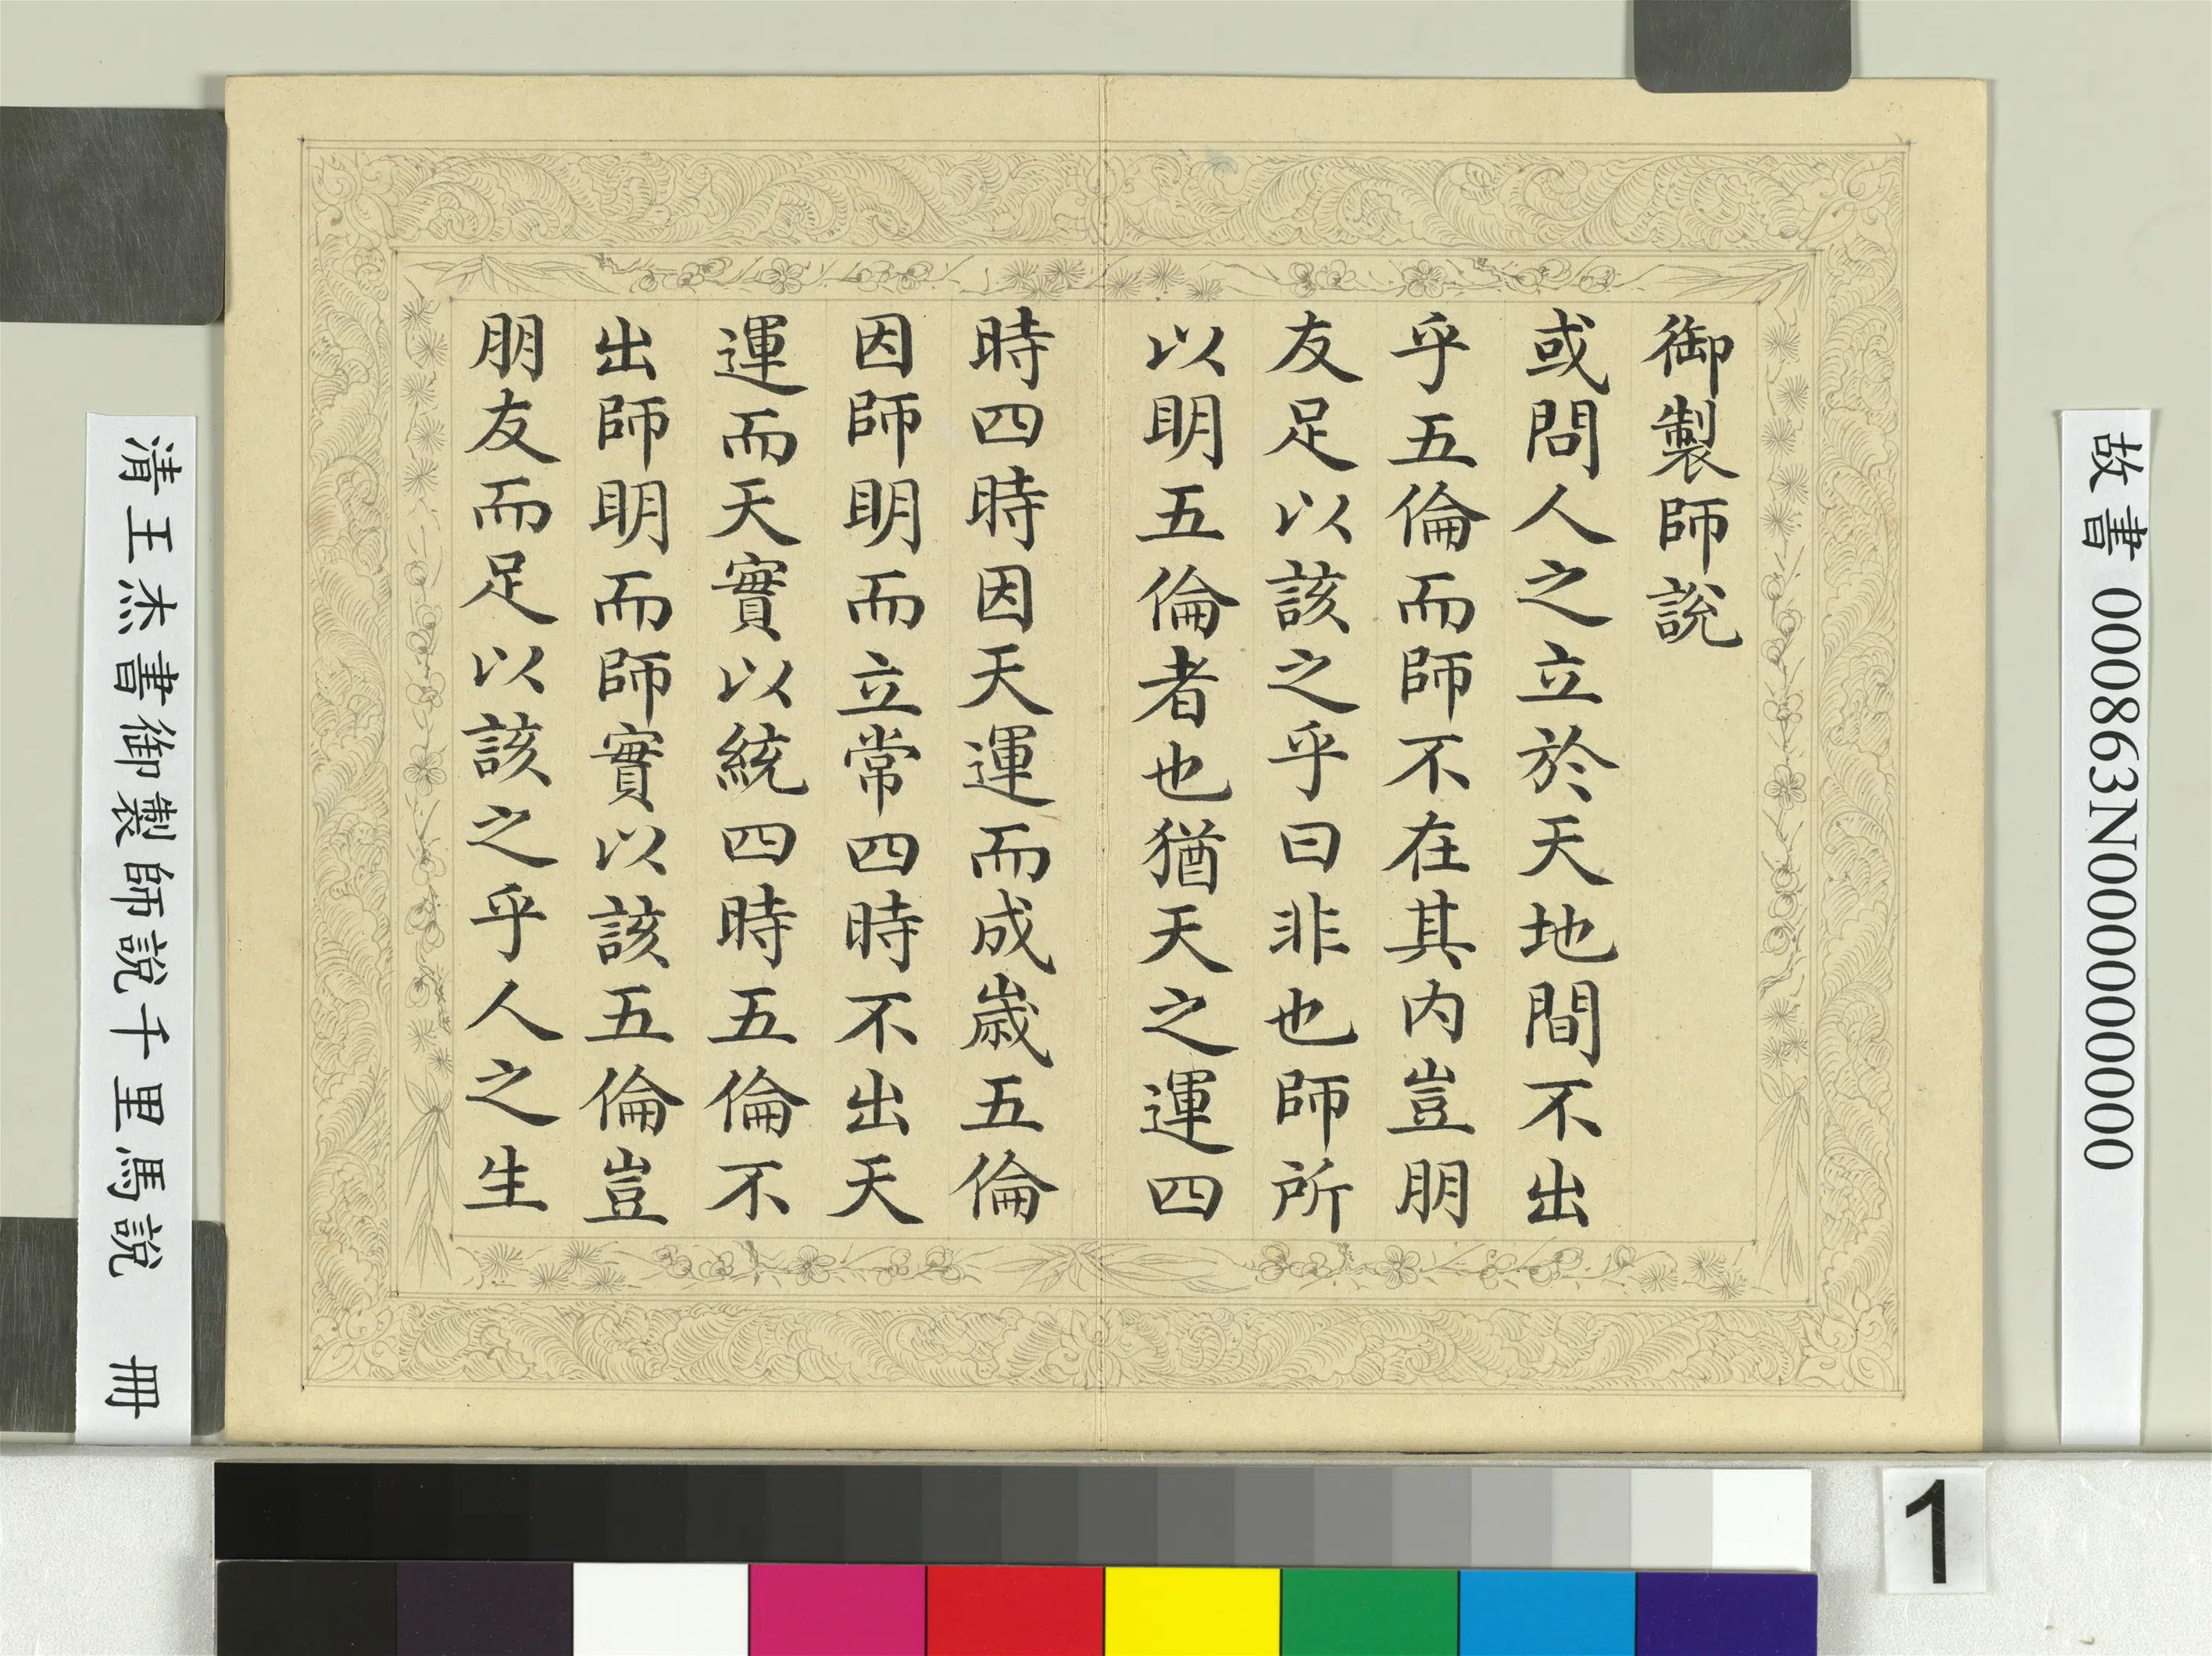 御製師說
或問人之立於天地間不出
乎五倫而師不在其内豈朋
友足以該之乎曰非也師所
以明五倫者也猶天之運四
時四時因天運而成歲五倫
因師明而立常四時不出天
運而天實以統四時五倫不
出師明而師實以該五倫豈
朋友而足以該之乎人之生
故書 000863N000000000
清王杰書御製師說千里馬說 冊
1